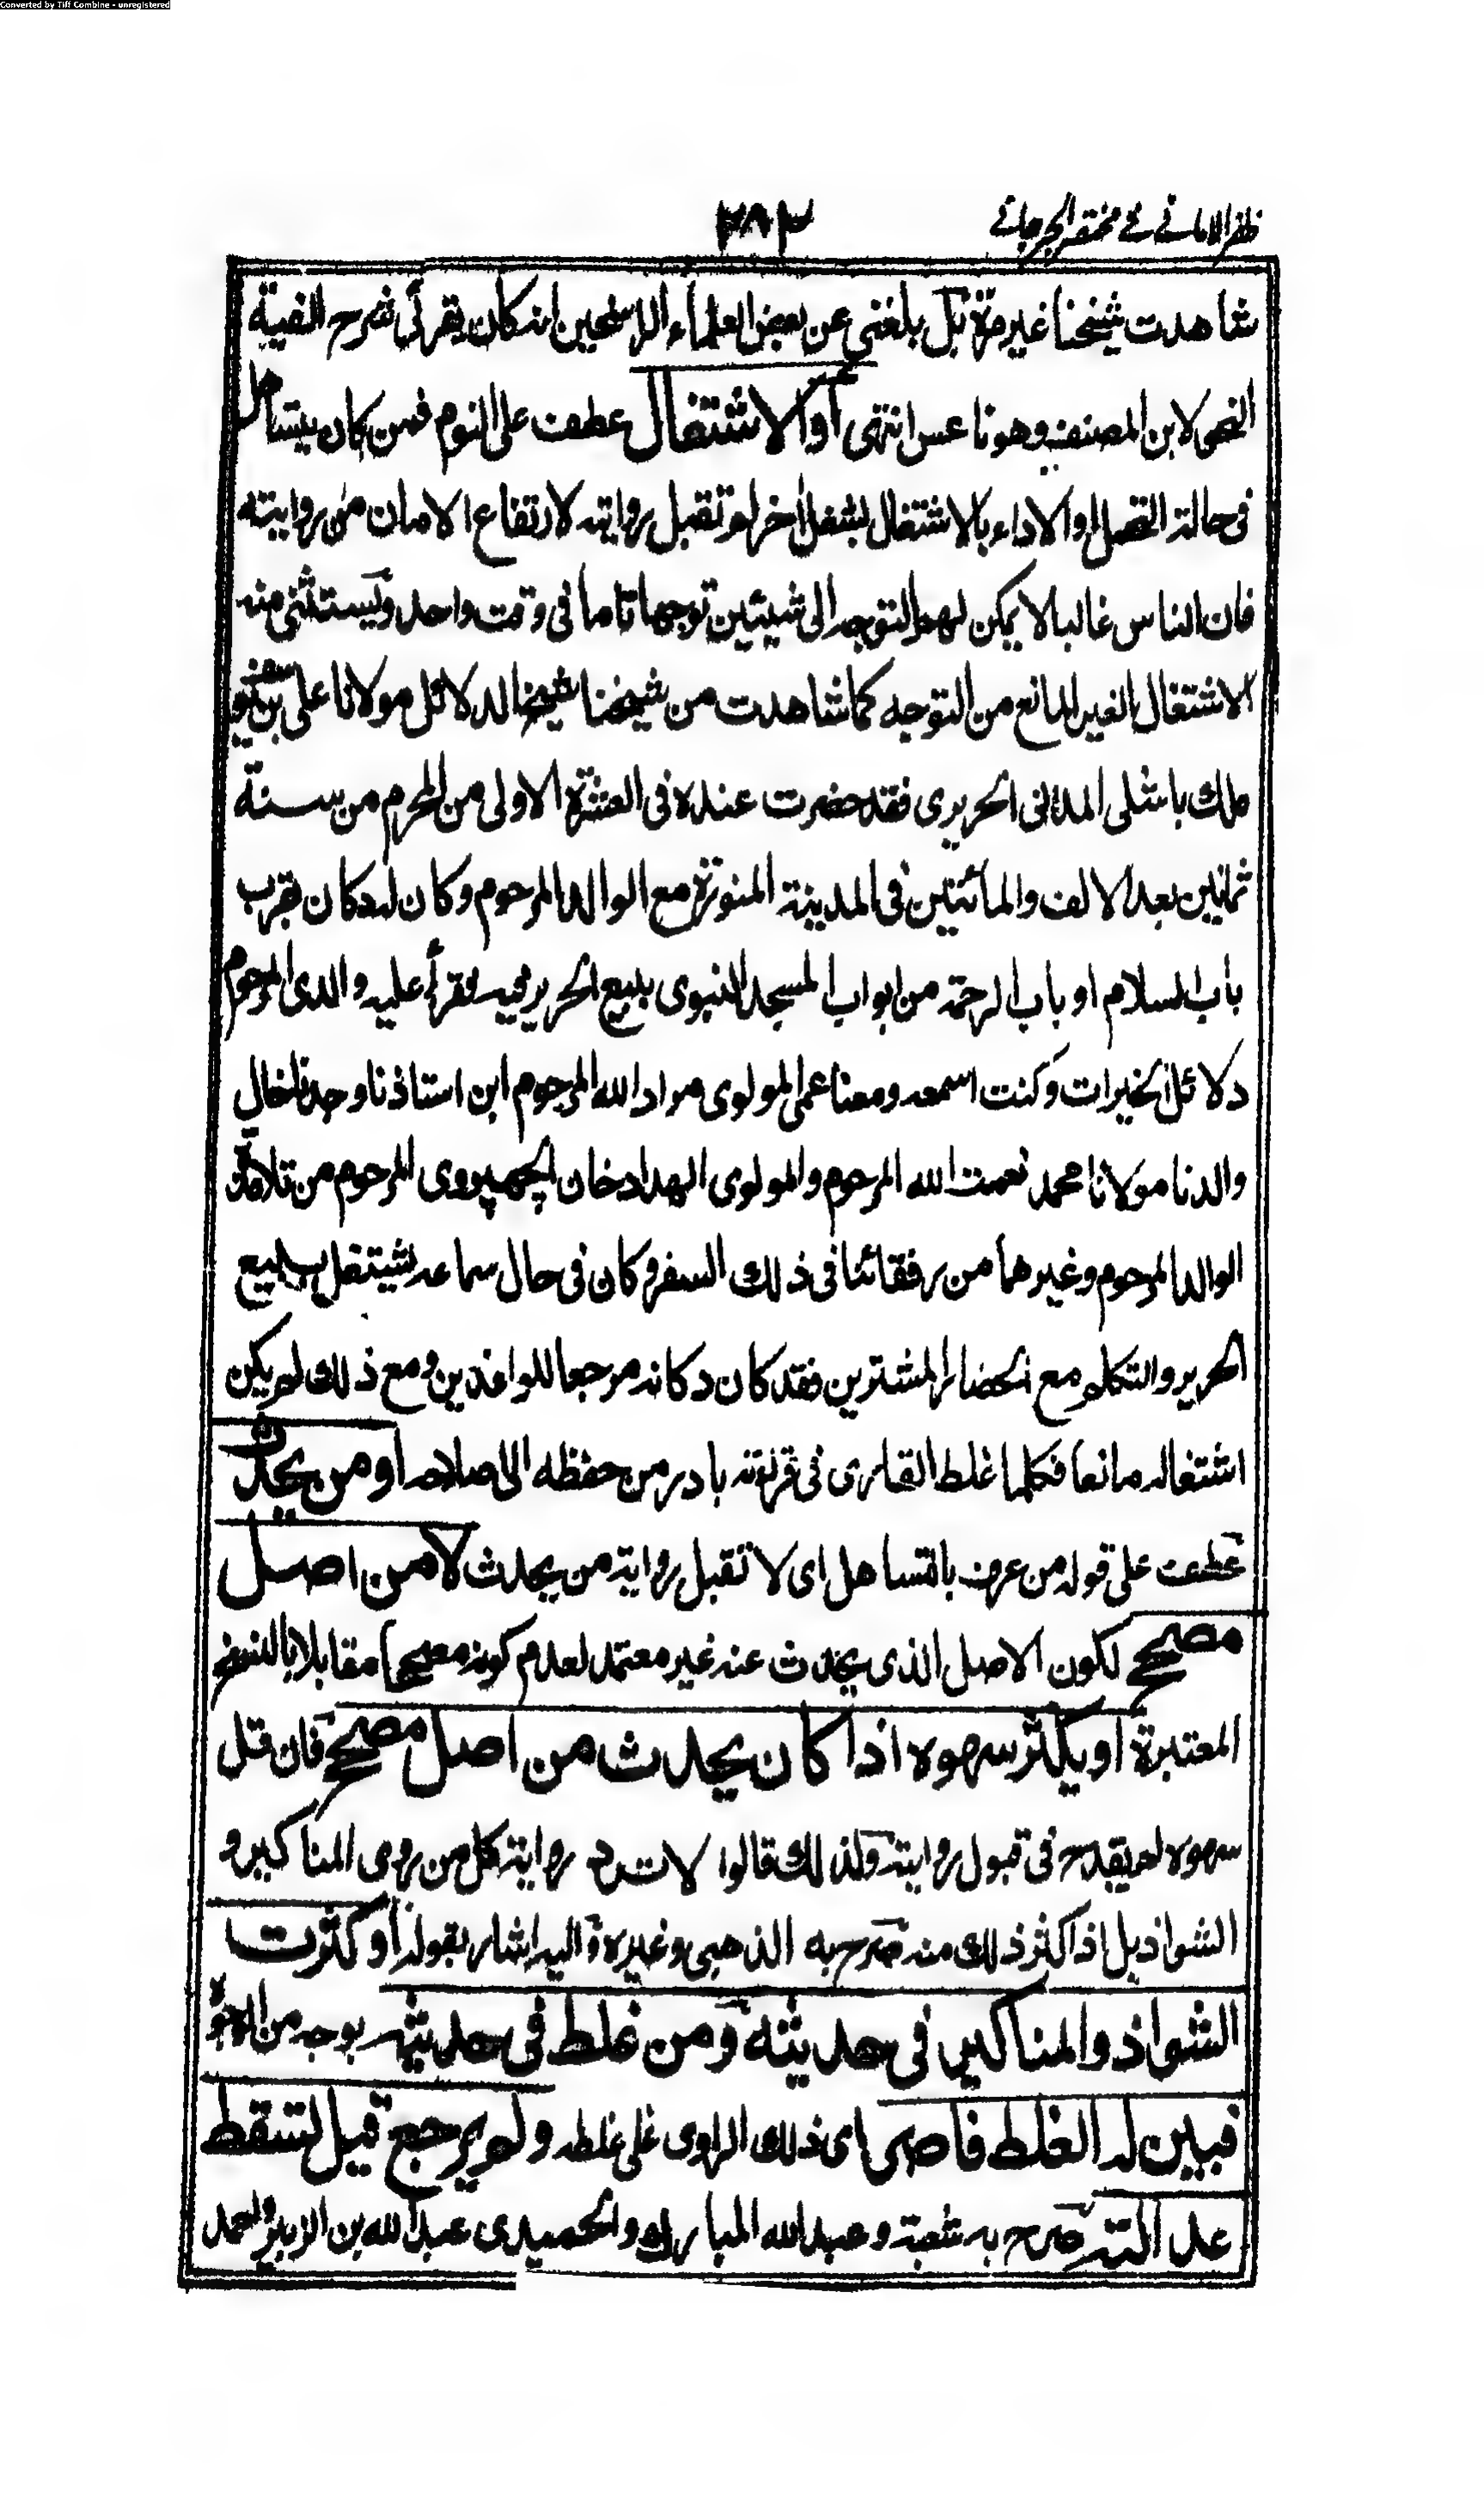 Converted by Tiff Combine - unregistered
ظفر الامانے فے مختصر الجرجانے
٣٨٣
شاهدت شيخنا غير مرة بل بلغني عن بعض العلماء الراسخين انه كان يقرأ في شرح الفية
النحو لابن المصنف وهو ناعس انتهى أو الاشتغال عطف على النوم فمن كان يتساهل
فى حالة التحمل او الاداء بالاشتغال بشغل اٰخر لم تقبل روايته لارتفاع الامان من روايته
فان الناس غالبا لا يمكن لهم التوجه الى شيئين توجها تاما فى وقت واحد ويستثنى منه
الاشتغال الغير المانع من التوجه كما شاهدت من شيخنا شيخ الدلائل مولانا على بن يوسف
ملك باشلى المدنى الحريرى فقد حضرت عنده فى العشرة الاولى من المحرم من سنة
ثمانين بعد الالف والمائتين فى المدينة المنورة مع الوالد المرحوم وكان له دكان بقرب
باب السلام او باب الرحمة من ابواب المسجد النبوى يبيع الحرير فيه فقرأ عليه والدى المرحوم
دلائل الخيرات وكنت اسمعه ومعنا عمى المولوى مراد الله المرحوم ابن استاذنا وجدنا خال
والدنا مولانا محمد نعمت الله المرحوم والمولوى الهداد خان الچهپروى المرحوم من تلامذة
الوالد المرحوم وغيرهما من رفقائنا فى ذلك السفر وكان فى حال سماعه يشتغل ببيع
الحرير والتكلم مع الحضار المشترين فقد كان دكانه مرجعا للوافدين ومع ذلك لم يكن
اشتغاله مانعا فكلما غلط القارى فى قرئته بادر من حفظه الى اصلاحه أو من يحدث
عطف على قوله من عرف بالتساهل اى لا تقبل رواية من يحدث لا من اصل
مصحح لكون الاصل الذى يحدث عنه غير معتمد لعدم كونه مصححا مقابلا بالنسخ
المعتبرة او يكثر سهوه اذا كان يحدث من اصل مصحح فان قل
سهوه لم يقدح فى قبول روايته ولذلك قالوا لا ترد رواية كل من روى المناكير و
الشواذ بل اذا كثر ذلك منه صرح به الذهبى وغيره واليه اشار بقوله أو كثرت
الشواذ والمناكير فى حديثه ومن غلط فى حديثه بوجه من الوجوه
فبين له الغلط فاصر اى ذلك الراوى على غلطه ولم يرجع قيل تسقط
عدالته صرح به شعبة وعبد الله المبارك والحميدى عبد الله بن الزبير واحمد